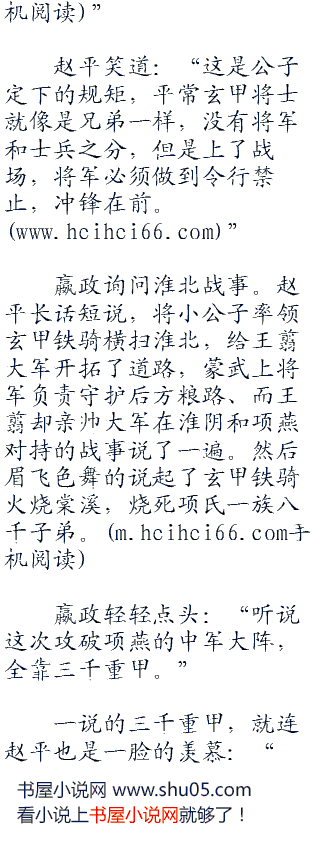 机阅读)”
赵平笑道：“这是公子
定下的规矩，平常玄甲将士
就像是兄弟一样，没有将军
和士兵之分，但是上了战
场，将军必须做到令行禁
止，冲锋在前。
(www.hcihci66.com)”
嬴政询问淮北战事。赵
平长话短说，将小公子率领
玄甲铁骑横扫淮北，给王翦
大军开拓了道路，蒙武上将
军负责守护后方粮路、而王
翦却亲帅大军在淮阴和项燕
对持的战事说了一遍。然后
眉飞色舞的说起了玄甲铁骑
火烧棠溪，烧死项氏一族八
千子弟。(m.hcihci66.com手
机阅读)
嬴政轻轻点头：“听说
这次攻破项燕的中军大阵，
全靠三千重甲。”
一说的三千重甲，就连
赵平也是一脸的羡慕：“
书屋小说网 www.shu05.com
看小说上书屋小说网就够了！